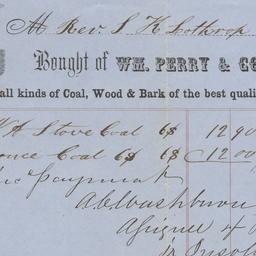 M Rev. S K Lothrop
Bought of WM. PERRY & CO
all kinds of Coal, Wood & Bark of the best quali
Stove Coal 6$ 12 90
Coal 6$ 6$ 12 00
Paymnt
A.C. Washburn
Assignee
In Insolv